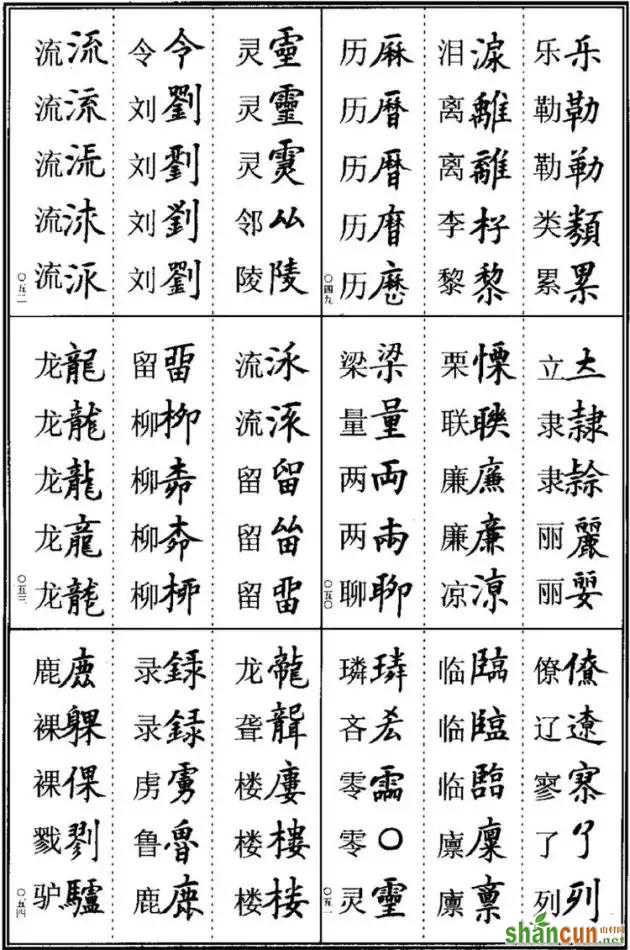 乐乐 勒勒 勒勒 类類 累累
泪淚 离離 离離 李杍 黎黎
历厤 历曆 历曆 历 历
〇四九
立立 隶隷 隶 丽麗 丽
栗慄 联聯 廉廉 廉廉 凉凉
梁梁 量量 两両 两兩 聊聊
〇五〇
僚僚 辽遼 寥寮 了了 列列
临臨 临臨 临臨 廪廩 廪稟
璘璘 吝 零霝 零〇 灵靈
〇五一
灵靈 灵靈 灵 邻厸 陵陵
令令 刘劉 刘劉 刘劉 刘劉
流流 流流 流流 流 流
〇五二
流 流 留留 留 留畱
留畱 柳柳 柳 柳 柳桺
龙龍 龙龍 龙龍 龙龍 龙龍
〇五三
龙龍 聋聾 楼廔 楼樓 楼楼
录録 录録 虏虜 鲁魯 鹿鹿
鹿鹿 裸躶 裸倮 戮剹 驴驢
〇五四
shancun 山村网